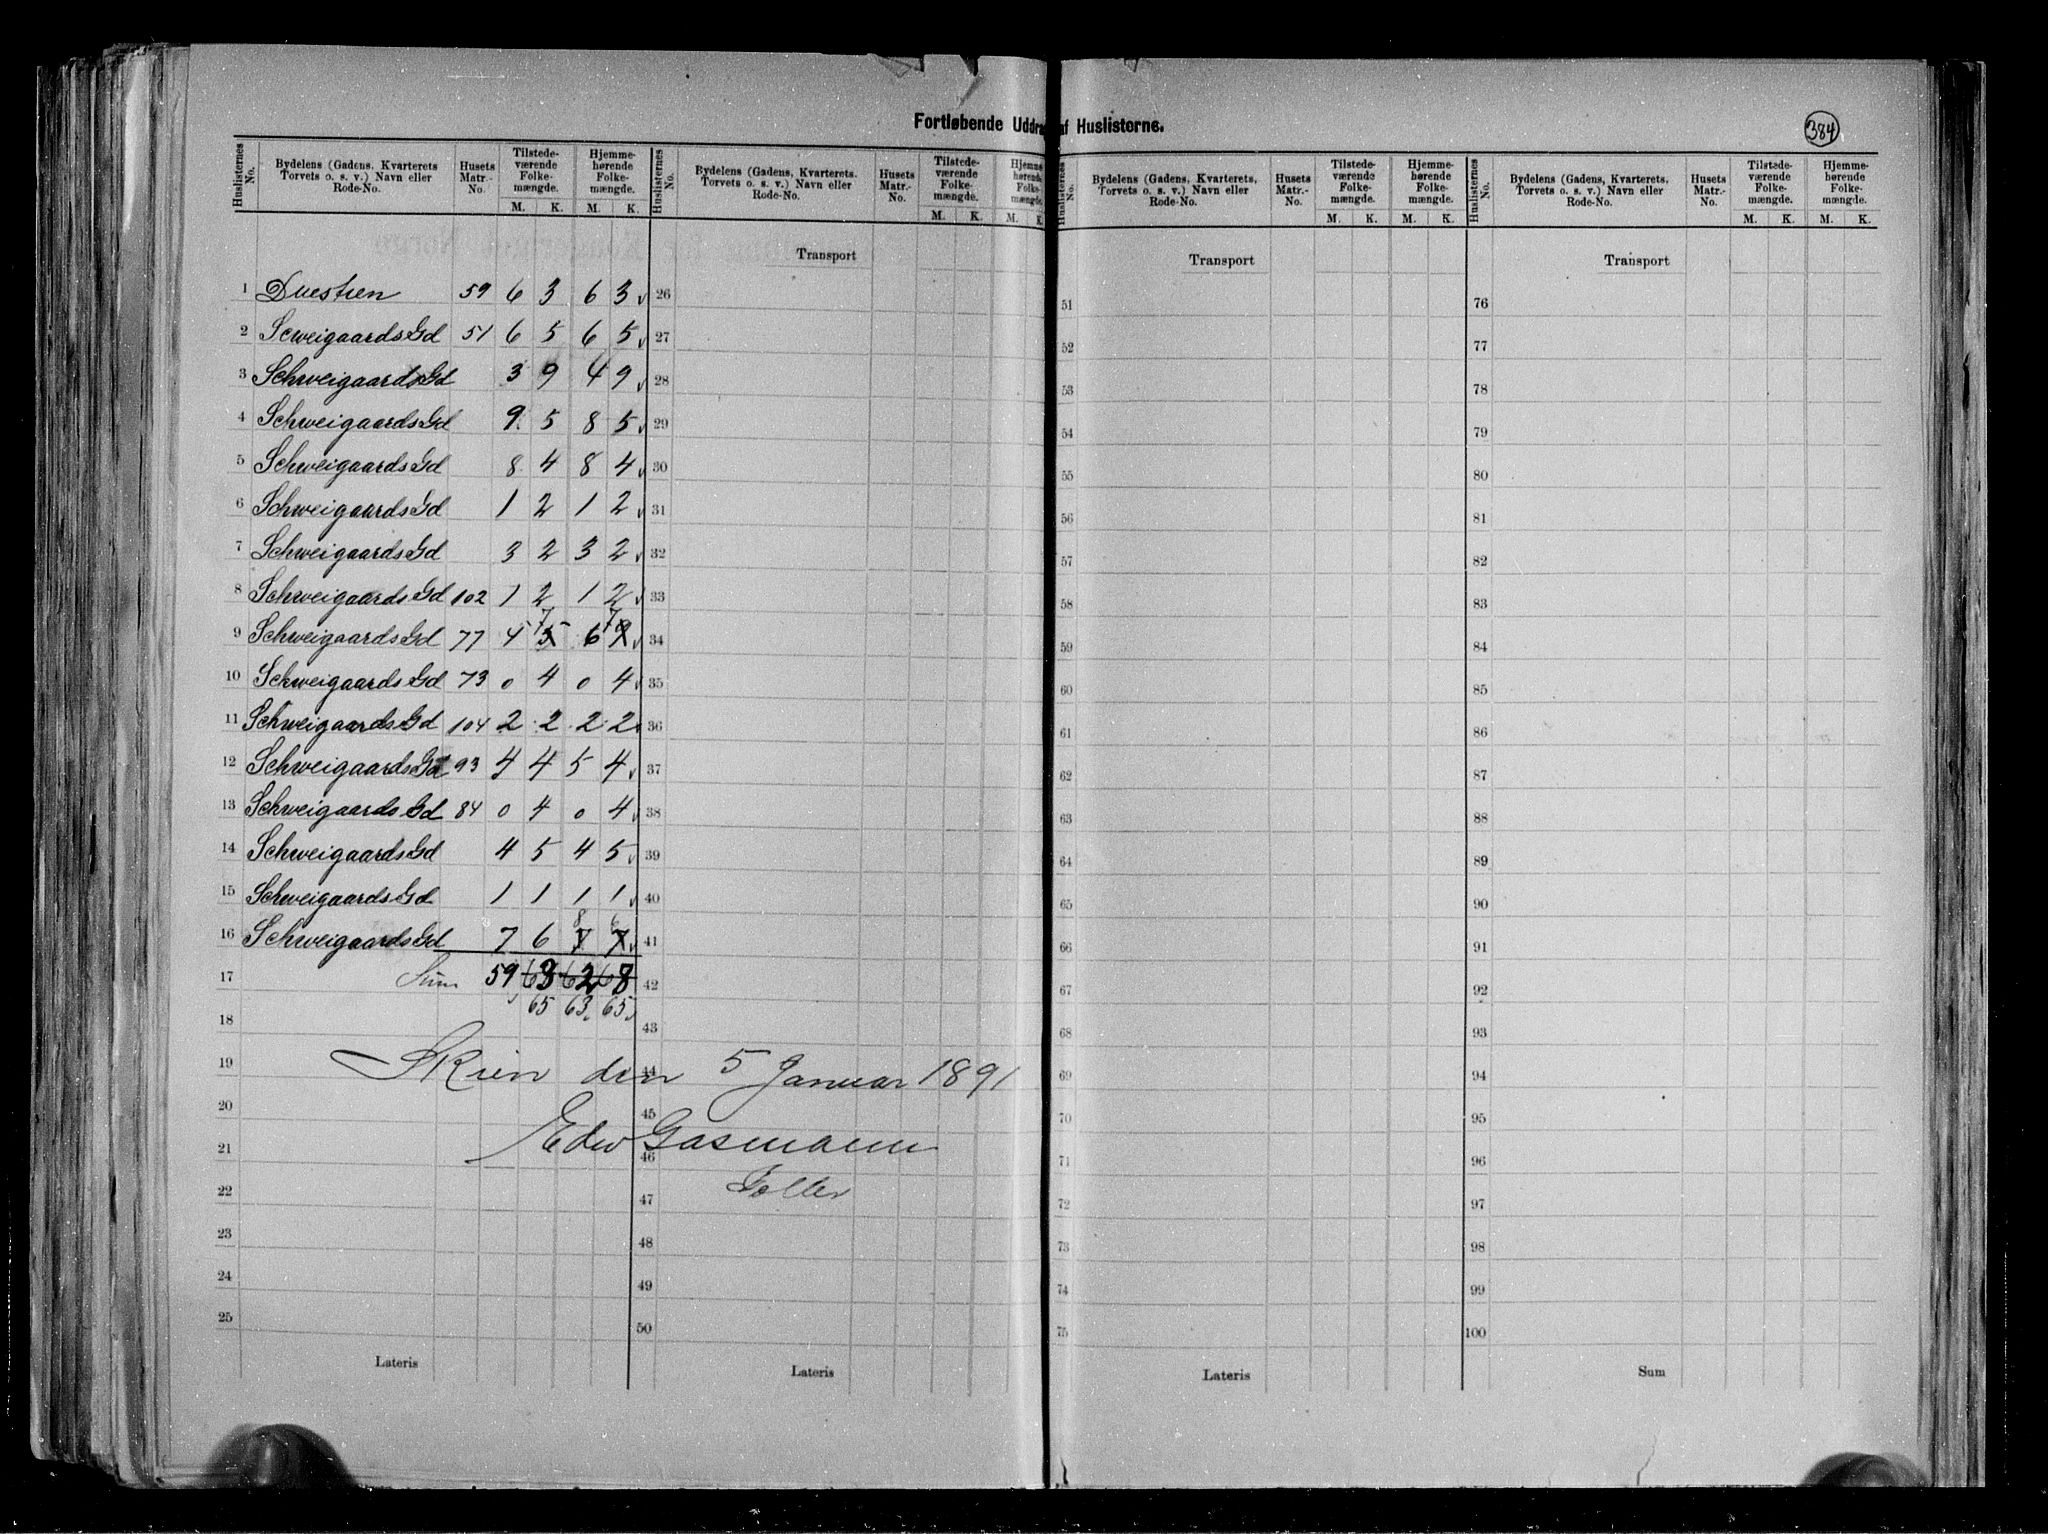 Fortløbende Uddrag af Huslisterne.
384
Huslisternes No. Bydelens (Gadens, Kvarterets Torvets o. s. v.) Navn eller Rode-No. Husets Matr.-No. Tilstedeværende Folkemængde. M. K. Hjemmehørende Folkemængde. M. K.
Huslisternes No. Bydelens (Gadens, Kvarterets, Torvets o. s. v.) Navn eller Rode-No. Husets Matr.-No. Tilstedeværende Folkemængde. M. K. Hjemmehørende Folkemængde. M. K.
Huslisternes No. Bydelens (Gadens, Kvarterets, Torvets o. s. v.) Navn eller Rode-No. Husets Matr.-No. Tilstedeværende Folkemængde. M. K. Hjemmehørende Folkemængde. M. K.
Huslisternes No. Bydelens (Gadens, Kvarterets, Torvets o. s. v.) Navn eller Rode-No. Husets Matr.-No. Tilstedeværende Folkemængde. M. K. Hjemmehørende Folkemængde. M. K.
Transport Transport Transport
1 Duestien 59 6 3 6 3 26 51 76
2 Scweigaards Gd 51 6 5 6 5 27 52 77
3 Schweigaards Gd 3 9 4 9 28 53 78
4 Schweigaards Gd 9 5 8 5 29 54 79
5 Schweigaards Gd 8 4 8 4 30 55 80
6 Schweigaards Gd 1 2 1 2 31 56 81
7 Schweigaards Gd 3 2 3 2 32 57 82
8 Schweigaards Gd 102 1 2 1 2 33 58 83
7 7
9 Schweigaards Gd 77 4 5 6 34 59 84
10 Schweigaards Gd 73 0 4 0 4 35 60 85
11 Schweigaards Gd 104 2 2 2 2 36 61 86
12 Schweigaards Gd 93 4 4 5 4 37 62 87
13 Schweigaards Gd 84 0 4 0 4 38 63 88
14 Schweigaards Gd 4 5 4 5 39 64 89
15 Schweigaards Gd 1 1 1 1 40 65 90
8 6
16 Schweigaards Gd 7 6 7 7 41 66 91
17 Sum 59 63 62 68 42 67 92
65 63 65
18 43 68 93
19 Skien den 5 Januar 1891 44 69 94
20 45 70 95
21 Edw Gasmann 46 71 96
22 Tæller 47 72 97
23 48 73 98
24 49 74 99
25 50 75 100
Lateris Lateris Lateris Sum